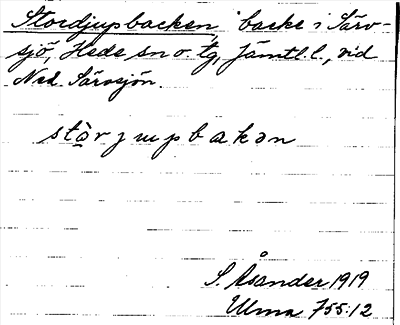 Stordjupbacken, backe i Särv-
sjö, Hede sn o. tg, Jämtl. l., vid
Ned. Särvsjön.
stòrjupbakən
S. Åsander 1919
Ulma 755:12